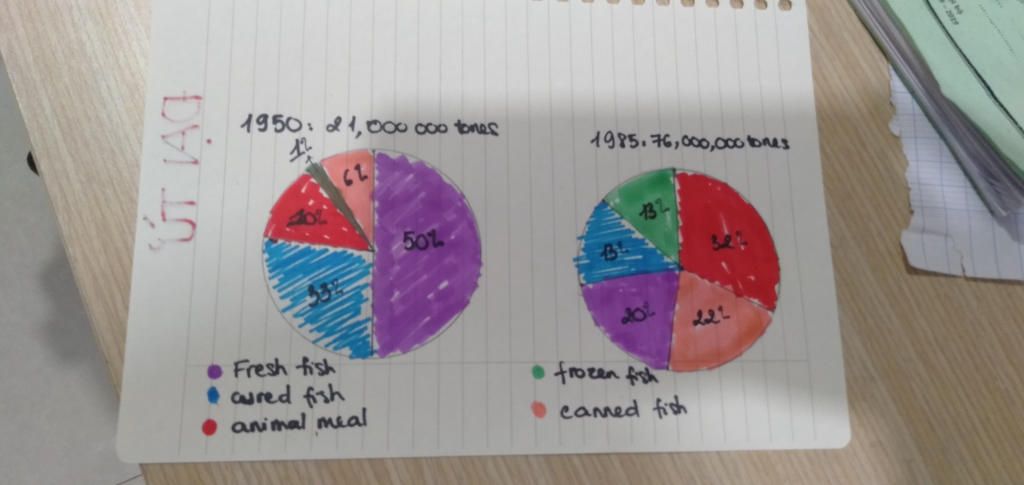 1950: 21,000 000 tones
1%
6%
10%
50%
33%
1985. 76,000,000 tones
13%
32%
13%
20%
22%
Fresh fish
cured fish
animal meal
frozen fish
canned fish
ÚT NẠD